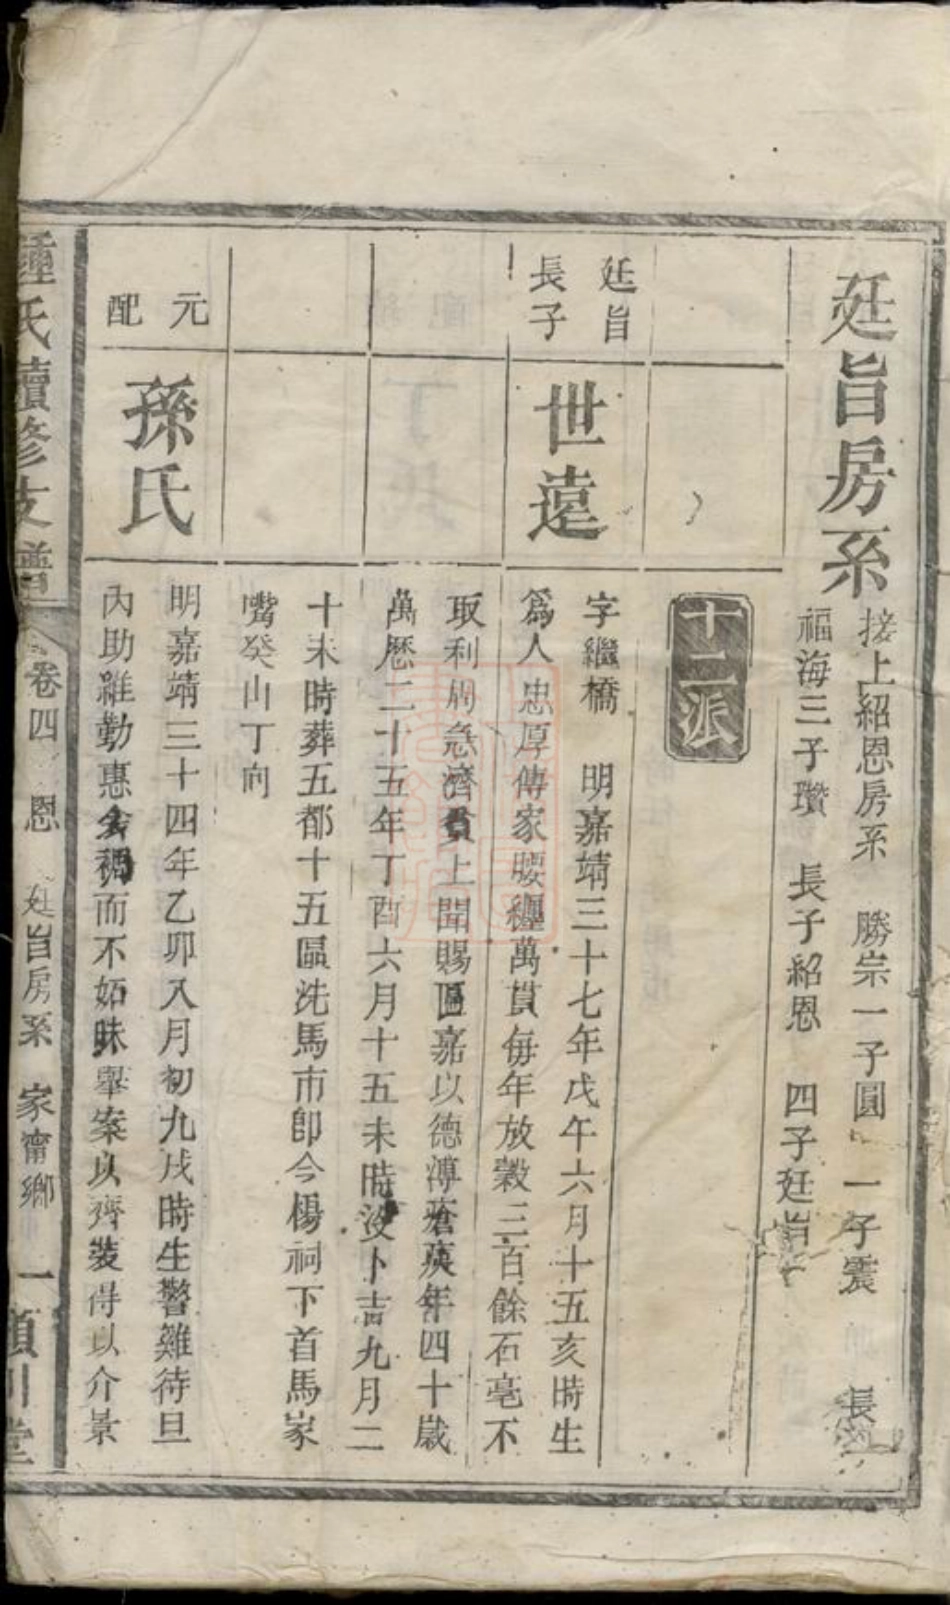 廷旨房系
接上紹恩房系 勝宗一子圓 一子震 長
福海三子瓚 長子紹恩 四子廷旨
十二派
廷旨
長子
世遠
字繼橋 明嘉靖三十七年戊午六月十五亥時生
爲人忠厚傳家腰纏萬貫每年放穀三百餘石毫不
取利周急濟貧上聞賜匾嘉以德溥 年四十歲
萬厯二十五年丁酉六月十五未時没卜吉九月二
十未時葬五都十五區洗馬市卽今楊祠下首馬家
嘴癸山丁向
元
配
孫氏
明嘉靖三十四年乙卯八月初九戌時生警雞待旦
內助維勤惠 而不妬 舉案以齊裝得以介景
鍾氏續修支譜
卷四 恩 廷旨房系 家甯鄉 一 潁川堂